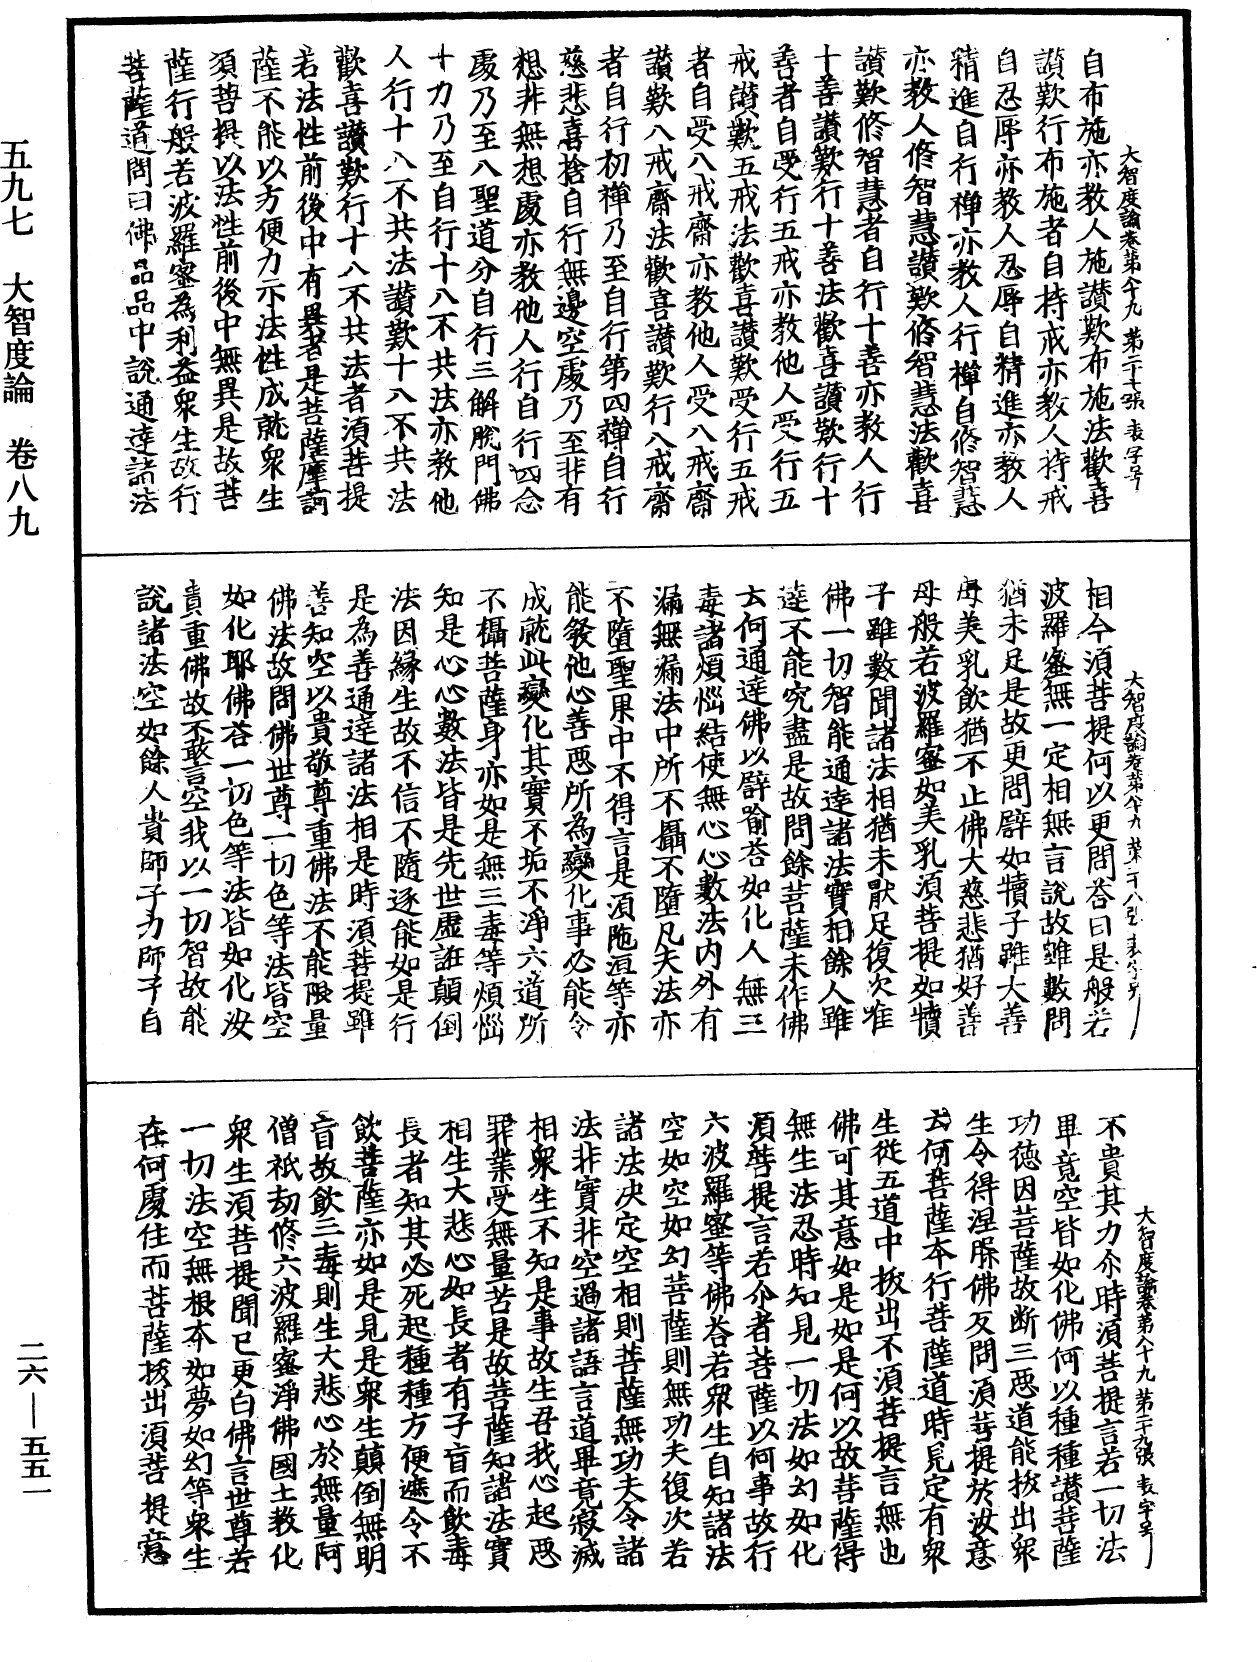 大智度論卷第八十九 第二十七張 表字号
自布施亦教人施讃歎布施法歡喜
讃歎行布施者自持戒亦教人持戒
自忍辱亦教人忍辱自精進亦教人
精進自行禪亦教人行禪自修智慧
亦教人修智慧讃歎修智慧法歡喜
讃歎修智慧者自行十善亦教人行
十善讃歎行十善法歡喜讃歎行十
善者自受行五戒亦教他人受行五
戒讃歎五戒法歡喜讃歎受行五戒
者自受八戒齋亦教他人受八戒齋
讃歎八戒齋法歡喜讃歎行八戒齋
者自行初禪乃至自行第四禪自行
慈悲喜捨自行無邊空處乃至非有
想非無想處亦教他人行自行四念
處乃至八聖道分自行三解脫門佛
十力乃至自行十八不共法亦教他
人行十八不共法讃歎十八不共法
歡喜讃歎行十八不共法者須菩提
若法性前後中有異者是菩薩摩訶
薩不能以方便力示法性成就衆生
須菩提以法性前後中無異是故菩
薩行般若波羅蜜為利益衆生故行
菩薩道問曰佛品品中説通達諸法
大智度論卷第八十九 第二十八張 表字号
相今須菩提何以更問荅曰是般若
波羅蜜無一定相無言說故雖數問
猶未足是故更問譬如犢子雖大善
母美乳飲猶不止佛大慈悲猶好善
母般若波羅蜜如美乳須菩提如犢
子雖數聞諸法相猶未猒足復次唯
佛一切智能通達諸法實相餘人雖
達不能究盡是故問餘菩薩未作佛
云何通達佛以譬喻荅如化人無三
毒諸煩惱結使無心心數法內外有
漏無漏法中所不攝不墮凡夫法亦
不墮聖果中不得言是須陁洹等亦
能發他心善惡所為變化事必能令
成就此變化其實不垢不淨六道所
不攝菩薩身亦如是無三毒等煩惱
知是心心數法皆是先世虛誑顛倒
法因緣生故不信不隨逐能如是行
是為善通達諸法相是時須菩提雖
善知空以貴敬尊重佛法不能限量
佛法故問佛世尊一切色等法皆空
如化耶佛荅一切色等法皆如化汝
貴重佛故不敢言空我以一切智故能
說諸法空如餘人貴師子力師子自
大智度論卷第八十九 第二十九張 表字号
不貴其力尒時須菩提言若一切法
畢竟空皆如化佛何以種種讃菩薩
功德因菩薩故断三惡道能拔出衆
生令得涅槃佛反問須菩提於汝意
云何菩薩本行菩薩道時見定有衆
生從五道中拔出不須菩提言無也
佛可其意如是如是何以故菩薩得
無生法忍時知見一切法如幻如化
須菩提言若尒者菩薩以何事故行
六波羅蜜等佛荅若衆生自知諸法
空如空如幻菩薩則無功夫復次若
諸法决定空相則菩薩無功夫令諸
法非實非空過諸語言道畢竟寂滅
相衆生不知是事故生吾我心起惡
罪業受無量苦是故菩薩知諸法實
相生大悲心如長者有子盲而飲毒
長者知其必死起種種方便遮令不
飲菩薩亦如是見是衆生顛倒無明
盲故飲三毒則生大悲心於無量阿
僧祇劫修六波羅蜜淨佛國土教化
衆生須菩提聞已更白佛言世尊若
一切法空無根本如夢如幻等衆生
在何處住而菩薩拔出須菩提意
五九七 大智度論 卷八九
二六—五五一